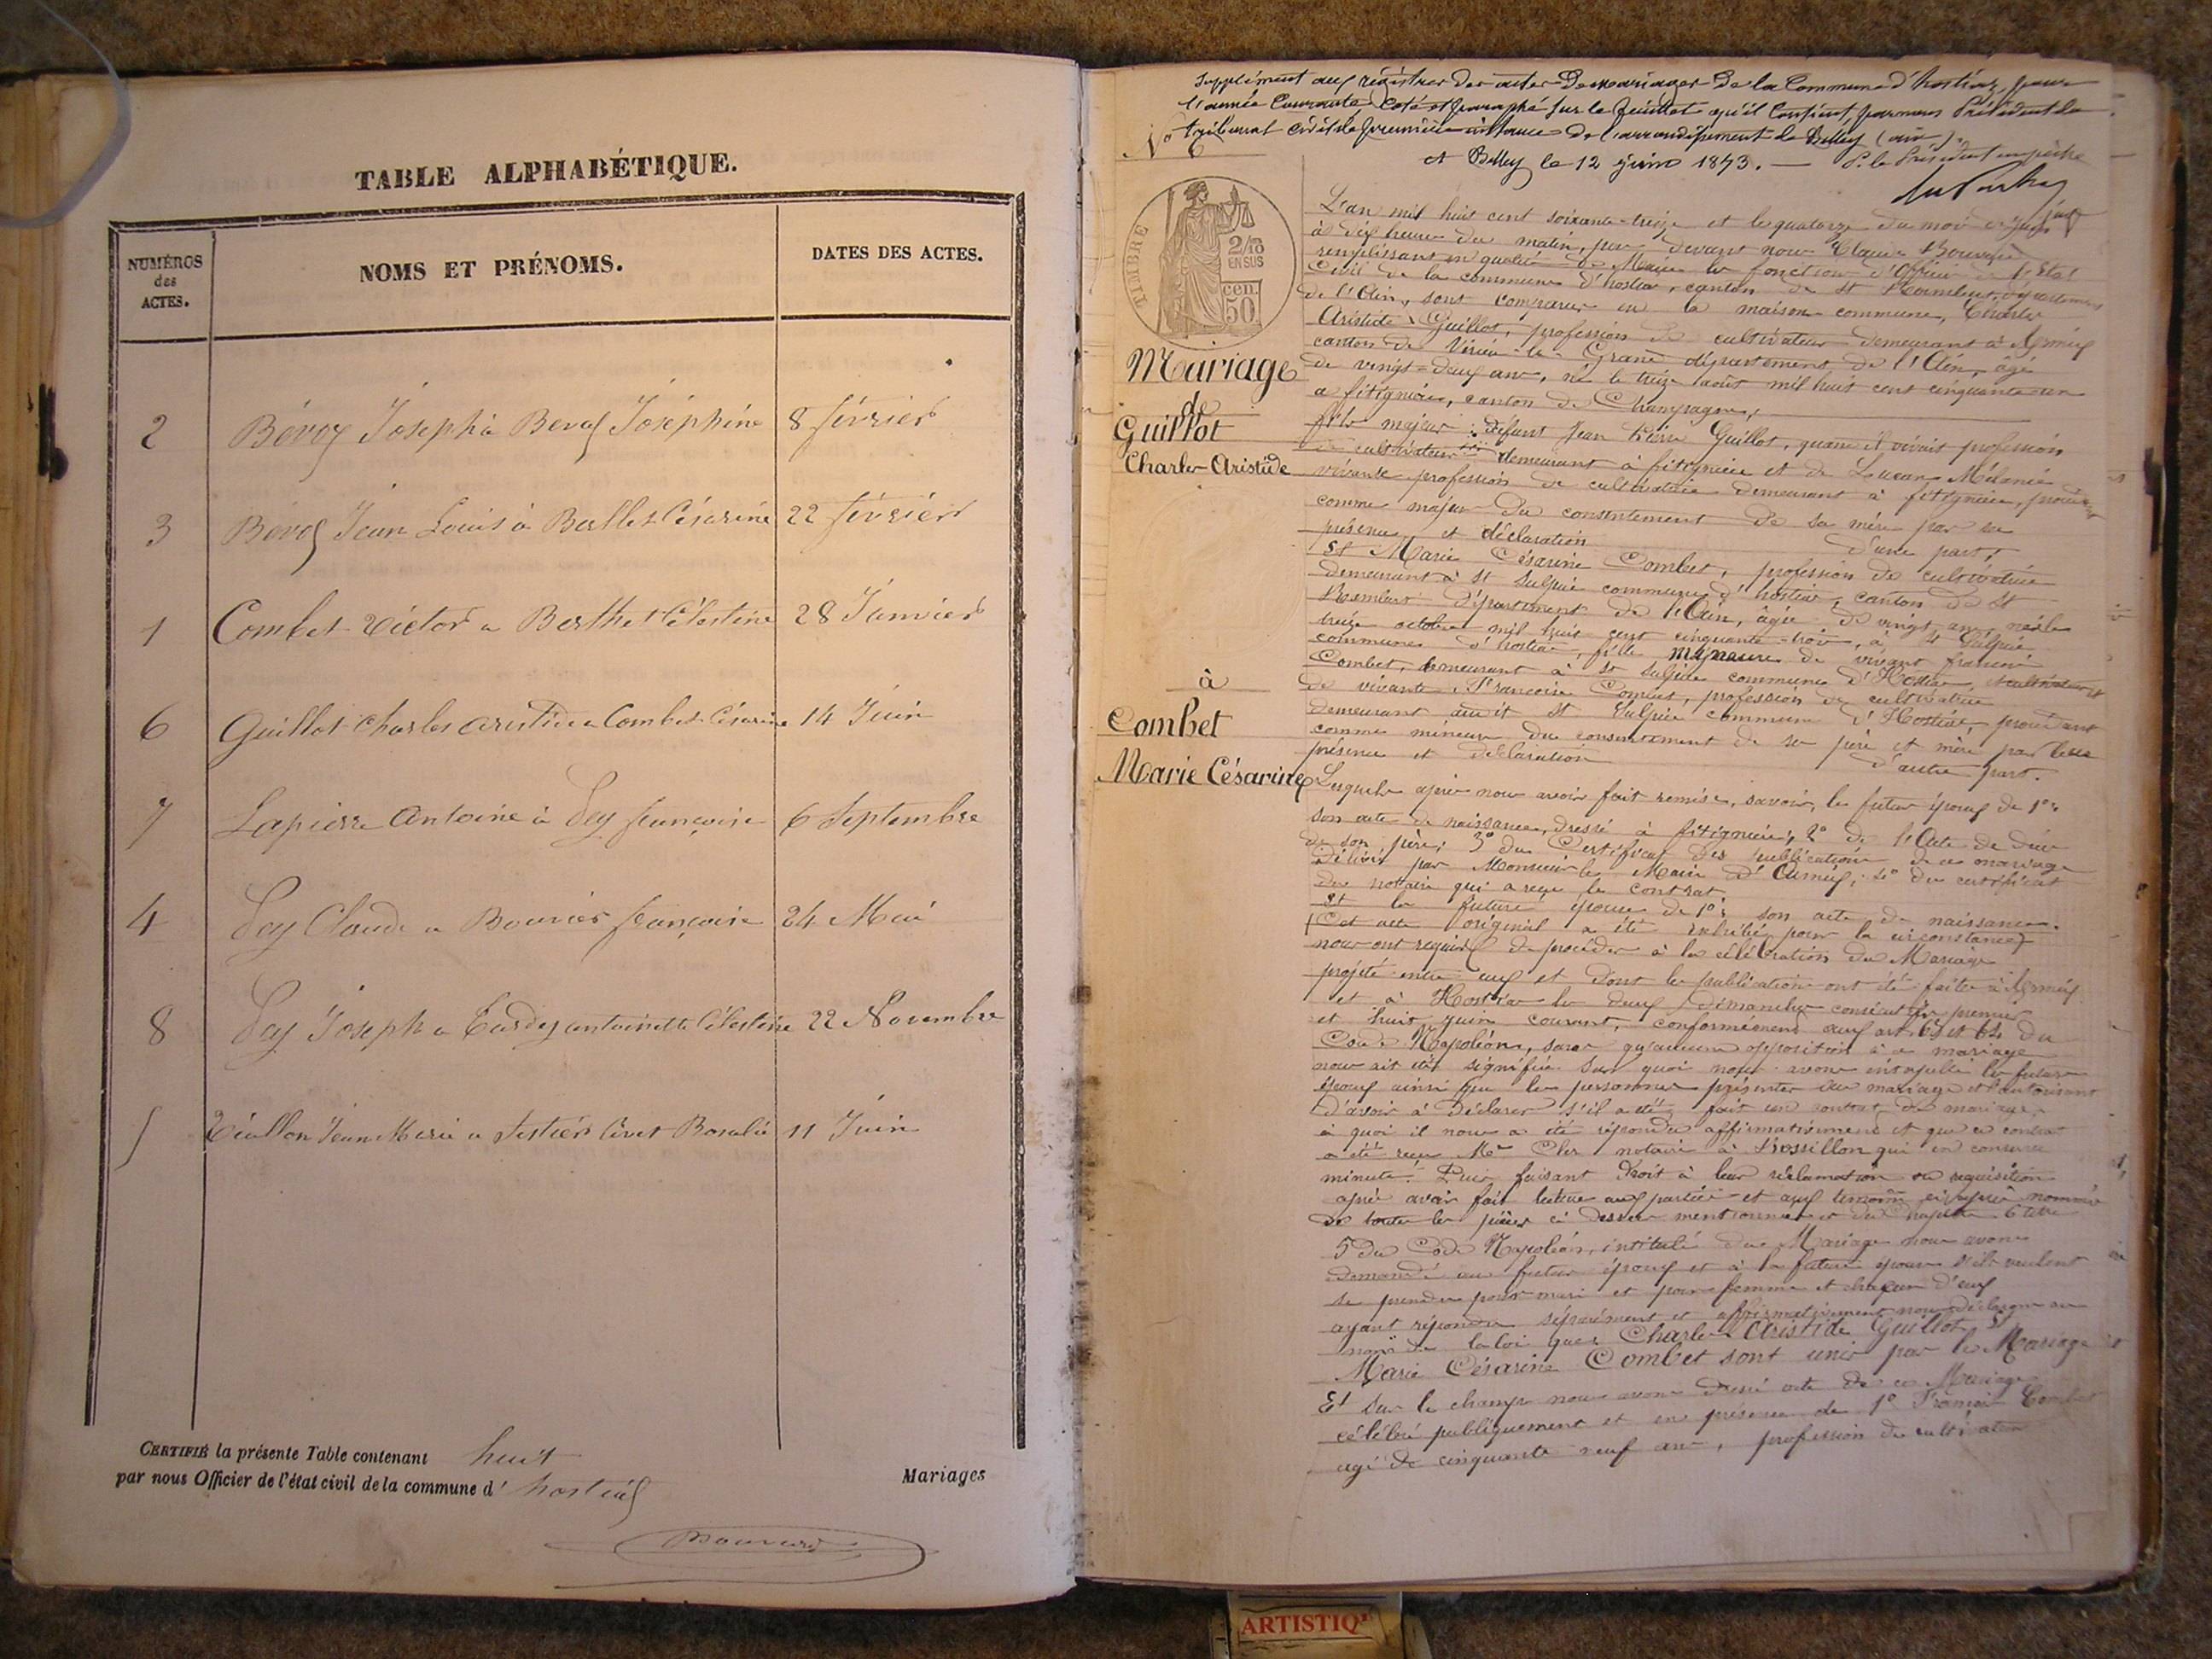 TABLE ALPHABÉTIQUE.
NUMÉROS
des
ACTES.
NOMS ET PRÉNOMS.
DATES DES ACTES.
2 Bévoz Joseph à Bevoz Joséphine 8 février
3 Bévoz Jean Louis à Berthet Césarine 22 février
1 Combet Victor a Berthet Célestine 28 Janvier
6 Guillot Charles aristide a Combet Césarine 14 Juin
7 Lapierre Antoine à françoise 6 Septembre
4 Claude a Bouvier françoise 24 Mai
8 Joseph a antoinette Célestine 22 Novembre
5 Jean Marie a Rosalie 11 Juin
CERTIFIÉ la présente Table contenant huit Mariages
par nous Officier de l'état civil de la commune d' hostiaz
Supplément aux registres des actes de mariages de la Commune d'hostiaz pour
l'année Courante, Coté et paraphé sur le feuillet qu'il Contient, par nous Président du
tribunal civil de première instance de l'arrondissement de Belley (ain).
A Belley le 12 Juin 1873. — P. le Président empêché
No 6
TIMBRE
2/10
EN SUS
cen.
50
Mariage
de
Guillot
Charles Aristide
à
Combet
Marie Césarine
L'an mil huit cent soixante-treize et le quatorze du mois de Juin
à dix heures du matin, par devant nous Claude
remplissant en qualité de Maire les fonctions d'Officier de l'Etat
Civil de la commune d'hostiaz, canton de St Rambert, département
de l'Ain, sont comparus en la maison commune, Charles
Aristide Guillot, profession de cultivateur demeurant à
canton de Virieu-le-Grand département de l'Ain, âgé
de vingt-deux ans, né le treize août mil huit cent cinquante un
a fitignieu, canton de Champagne,
fils majeur défunt Jean Pierre Guillot, quand il vivait profession
de cultivateur demeurant à fitignieu et de Mélanie
vivante profession de cultivatrice demeurant à fitignieu, procédant
comme majeur du consentement de sa mère par sa
présence et déclaration d'une part;
Et Marie Césarine Combet, profession de cultivatrice
demeurant à St Sulpice commune d'hostiaz, canton de St
Rambert département de l'Ain, âgée de vingt ans, née le
treize octobre mil huit cent cinquante-trois, à St Sulpice
commune d'hostiaz, fille mineure de vivant francois
Combet, demeurant à St Sulpice commune d'Hostiaz
de vivante Françoise Combet, profession de cultivatrice
demeurant audit St Sulpice commune d'Hostiaz procédant
comme mineure du consentement de ses père et mère par leur
présence et déclaration d'autre part.
Lesquels après nous avoir fait remise, savoir, le futur époux de 1o
son acte de naissance, dressé à fitignieu; 2o de l'Acte de décès
de son père; 3o du Certificat des publications de ce mariage
délivré par Monsieur le Maire d' 4o du certificat
du notaire qui a reçu le contrat
Et la future épouse de 1o son acte de naissance.
(Cet acte original a été exhibé pour la circonstance)
nous ont requis de procéder à la célébration du Mariage
projeté entre eux et dont les publications ont été faites à
et à Hostiaz les deux dimanches consécutifs premier
et huit juin courant, conformément aux art. 63 et 64 du
Code Napoléon, sans qu'aucune opposition à ce mariage
nous ait été signifiée. Sur quoi nous avons interpellé les futurs
époux ainsi que les personnes présentes au mariage et l'autorisant
d'avoir à déclarer s'il a été fait un contrat de mariage,
à quoi il nous a été répondu affirmativement et que ce contrat
a été reçu Me notaire à Rossillon qui en conserve
minute. Puis faisant droit à leur réclamation ou requisition
après avoir fait lecture aux parties et aux témoins ci-après nommés
de toutes les pièces ci dessus mentionnées et du chapitre 6 titre
5 du Code Napoléon, intitulé du Mariage nous avons
demandé au futur époux et à la future épouse s'ils veulent
se prendre pour mari et pour femme et chacun d'eux
ayant répondu séparément et affirmativement, nous déclarons au
nom de la loi que Charles Aristide Guillot et
Marie Césarine Combet sont unis par le Mariage
Et sur le champ nous avons dressé acte de ce Mariage
célébré publiquement et en présence de 1o François Combet
agé de cinquante neuf ans, profession de cultivateur
ARTISTIQ